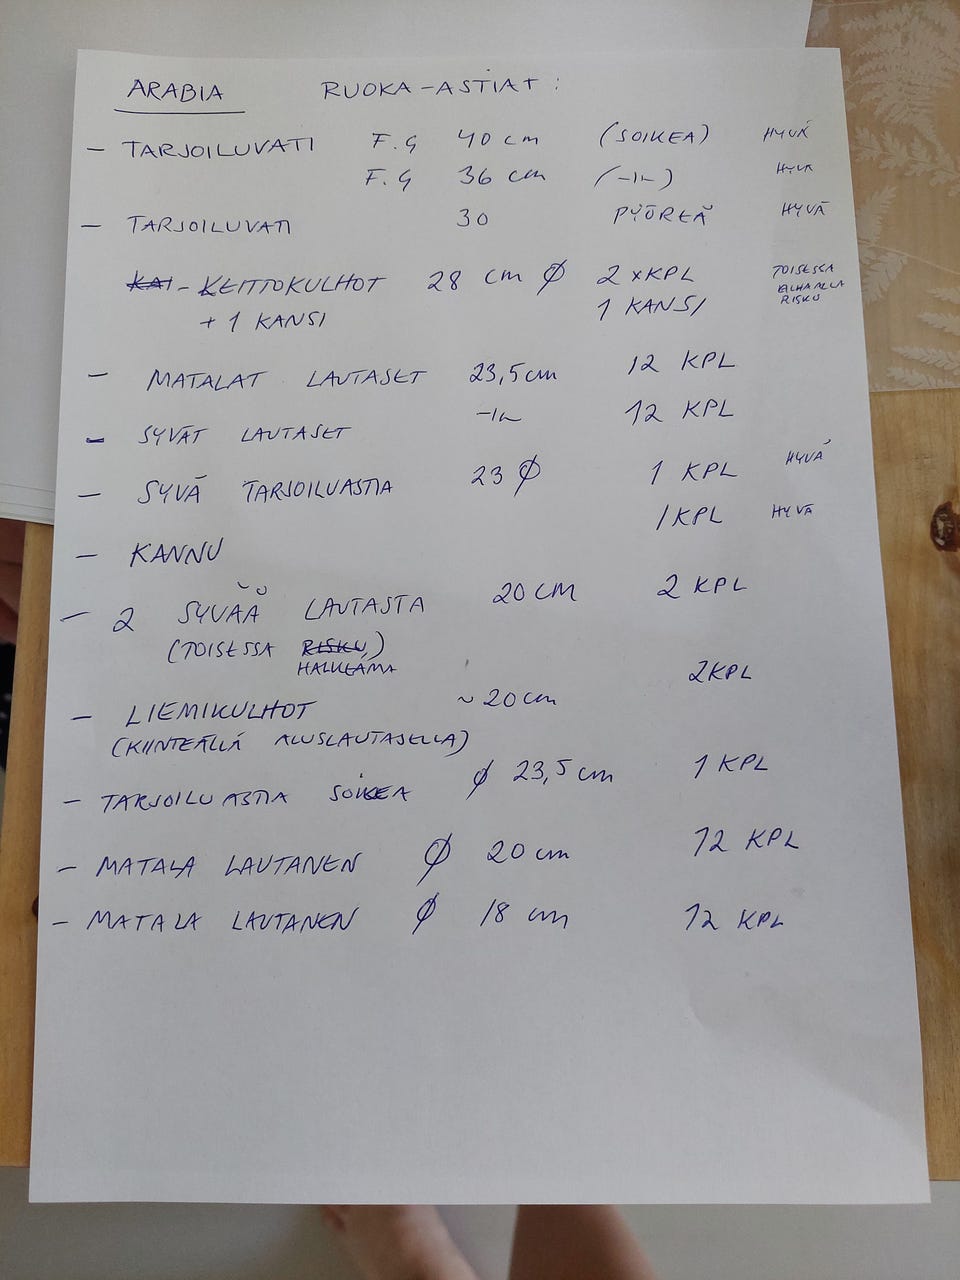 ARABIA RUOKA-ASTIAT:
- TARJOILUVATI F.G 40 cm (SOIKEA) HYVÄ
F.G 36 cm (-11-) HYVÄ
- TARJOILUVATI 30 PYÖREÄ HYVÄ
KAI - KEITTOKULHOT 28 cm Ø 2 x KPL TOISESSA
ALHAALLA
RISKU
+ 1 KANSI 1 KANSI
- MATALAT LAUTASET 23,5 cm 12 KPL
- SYVÄT LAUTASET -11- 12 KPL
- SYVÄ TARJOILUASTIA 23 Ø 1 KPL HYVÄ
- KANNU 1 KPL HYVÄ
- 2 SYVÄÄ LAUTASTA 20 CM 2 KPL
(TOISESSA RISKU)
HALKEAMA
- LIEMIKULHOT ~20 cm 2 KPL
(KIINTEÄLLÄ ALUSLAUTASELLA)
- TARJOILUASTIA SOIKEA Ø 23,5 cm 1 KPL
- MATALA LAUTANEN Ø 20 cm 12 KPL
- MATALA LAUTANEN Ø 18 cm 12 KPL